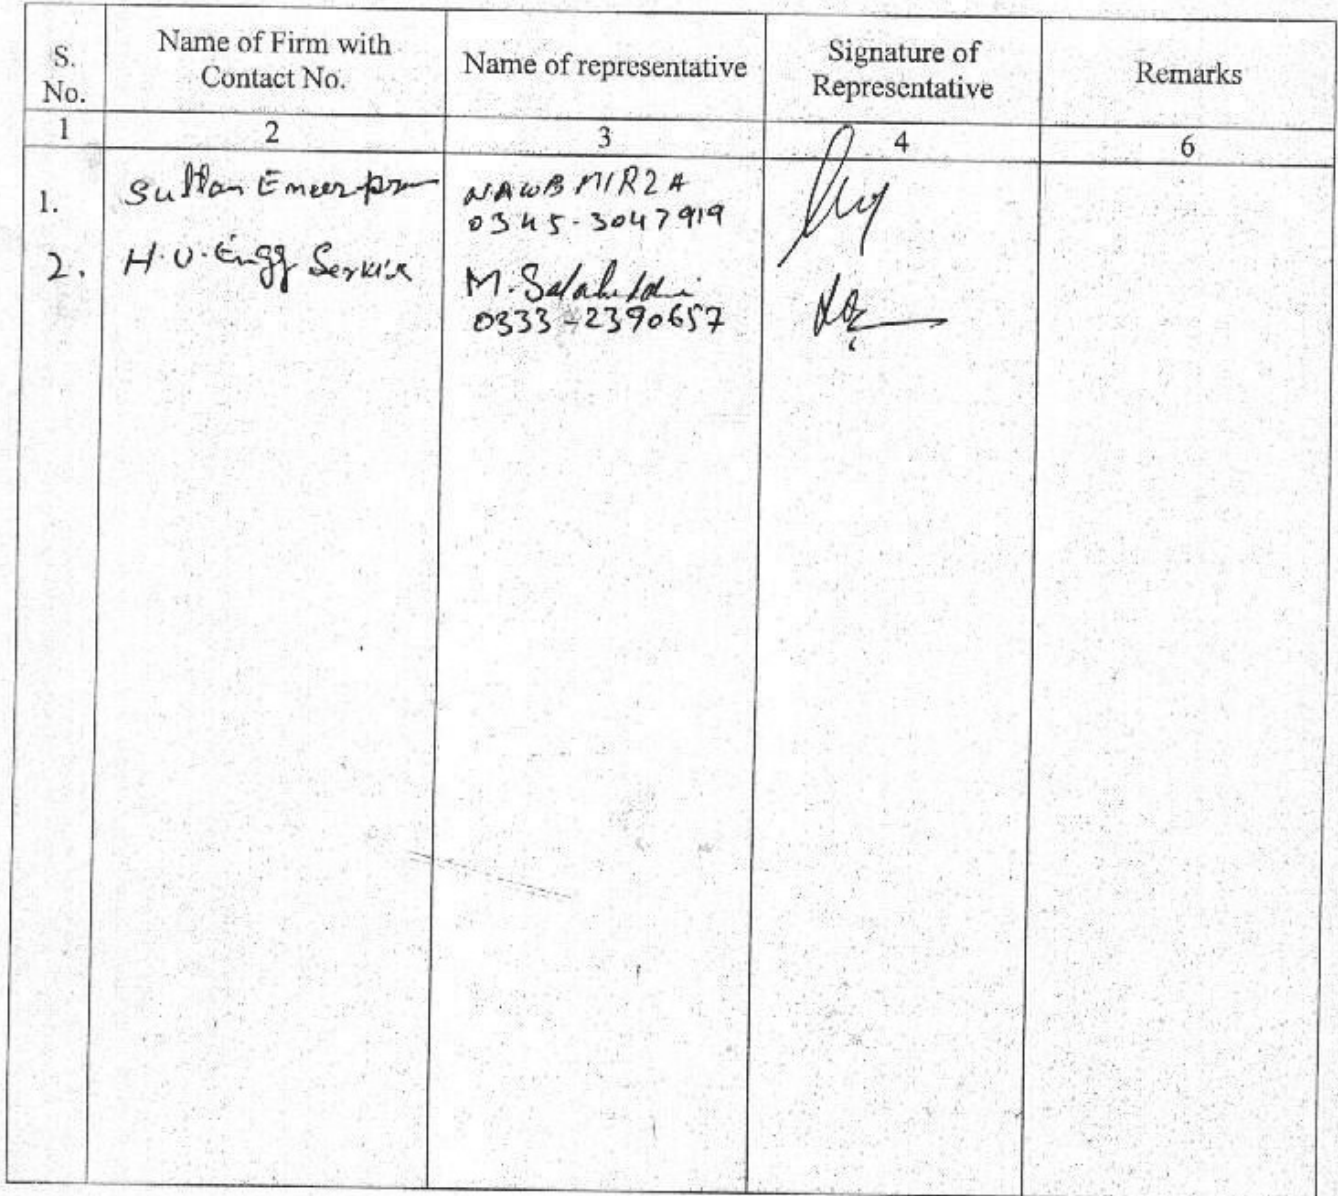 S. No.
Name of Firm with
Contact No.
Name of representative
Signature of
Representative
Remarks
1 2 3 4 6
1. Sultan NAWB MIRZA
0345-3047919
2. H.U. Engg Service M.
0333-2390657